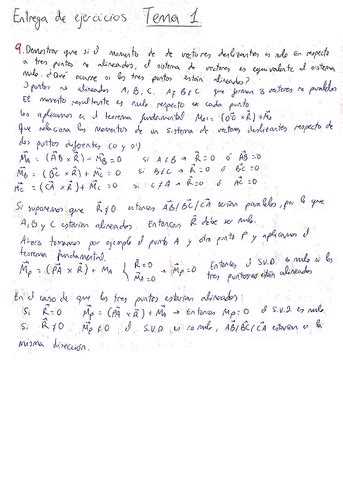 Entrega de ejercicios Tema 1
9. Demostrar que si el momento de de vectores deslizantes es nulo en respecto
a tres puntos no alineados, el sistema de vectores es equivalente al sistema
nulo. ¿Qué ocurre si los tres puntos están alineados?
3 puntos no alineados A, B, C. A≠B≠C que forman vectores no paralelos
El momento resultante es nulo respecto en cada punto
Los aplicamos en el teorema fundamental M⃗o' = (O⃗'O x R⃗) + M⃗o
Que relaciona los momentos de un sistema de vectores deslizantes respecto de
dos puntos diferentes (O y O')
M⃗A = (A⃗B x R⃗) + M⃗B = 0 si A≠B → R⃗ = 0 ó A⃗B = 0
M⃗B = (B⃗C x R⃗) + M⃗C = 0 si B≠C → R⃗ = 0 ó B⃗C = 0
M⃗C = (C⃗A x R⃗) + M⃗C = 0 si C≠A → R⃗ = 0 ó A⃗C = 0
Si suponemos que R⃗≠0 entonces A⃗B/B⃗C/C⃗A serían paralelos, por lo que
A, B y C estarían alineados. Entonces R⃗ debe ser nulo.
Ahora tomamos por ejemplo el punto A y otro punto P y aplicamos el
teorema fundamental.
M⃗p = (P⃗A x R⃗) + MA { R⃗=0 M⃗A=0 → M⃗p = 0 Entonces el S.V.D. es nulo si los
tres puntos no están alineados
En el caso de que los tres puntos estarían alineados:
Si R⃗=0 M⃗p = (P⃗A x R⃗) + MA → Entonces Mp = 0 el S.V.D. es nulo
Si R⃗≠0 M⃗p ≠ 0 el S.V.D. es no nulo, A⃗B/B⃗C/C⃗A estarían en la
misma dirección.